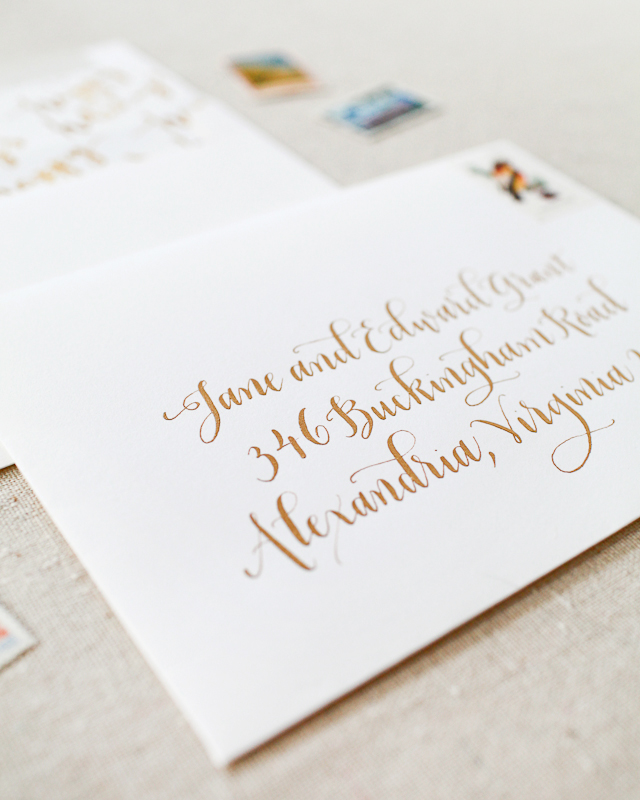 Jane and Edward Grant
346 Buckingham Road
Alexandria, Virginia